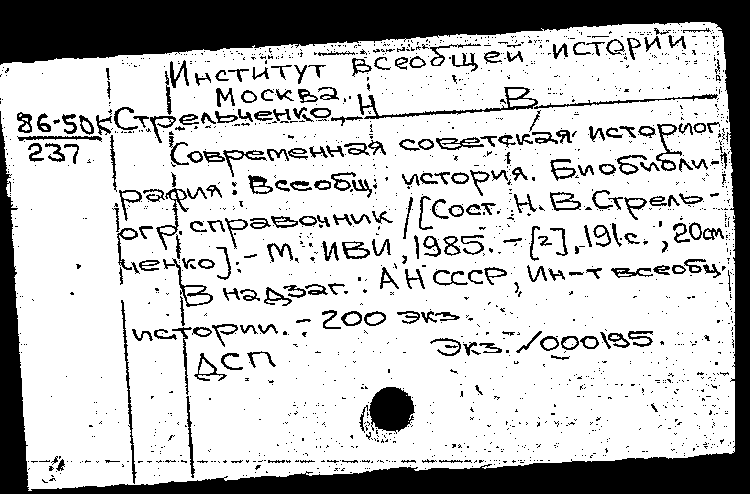 Институт всеобщей истории.
Москва.
86-50К Стрельченко, Н В
237 Современная советская историог
рафия: Всеобщ. история. Биобибли-
огр. справочник / [Сост. Н. В. Стрель-
ченко]. - М.: ИВИ, 1985. - [2], 191с.; 20см
В надзаг.: АН СССР, Ин-т всеобщ.
истории. - 200 экз.
ДСП Экз. №000195.